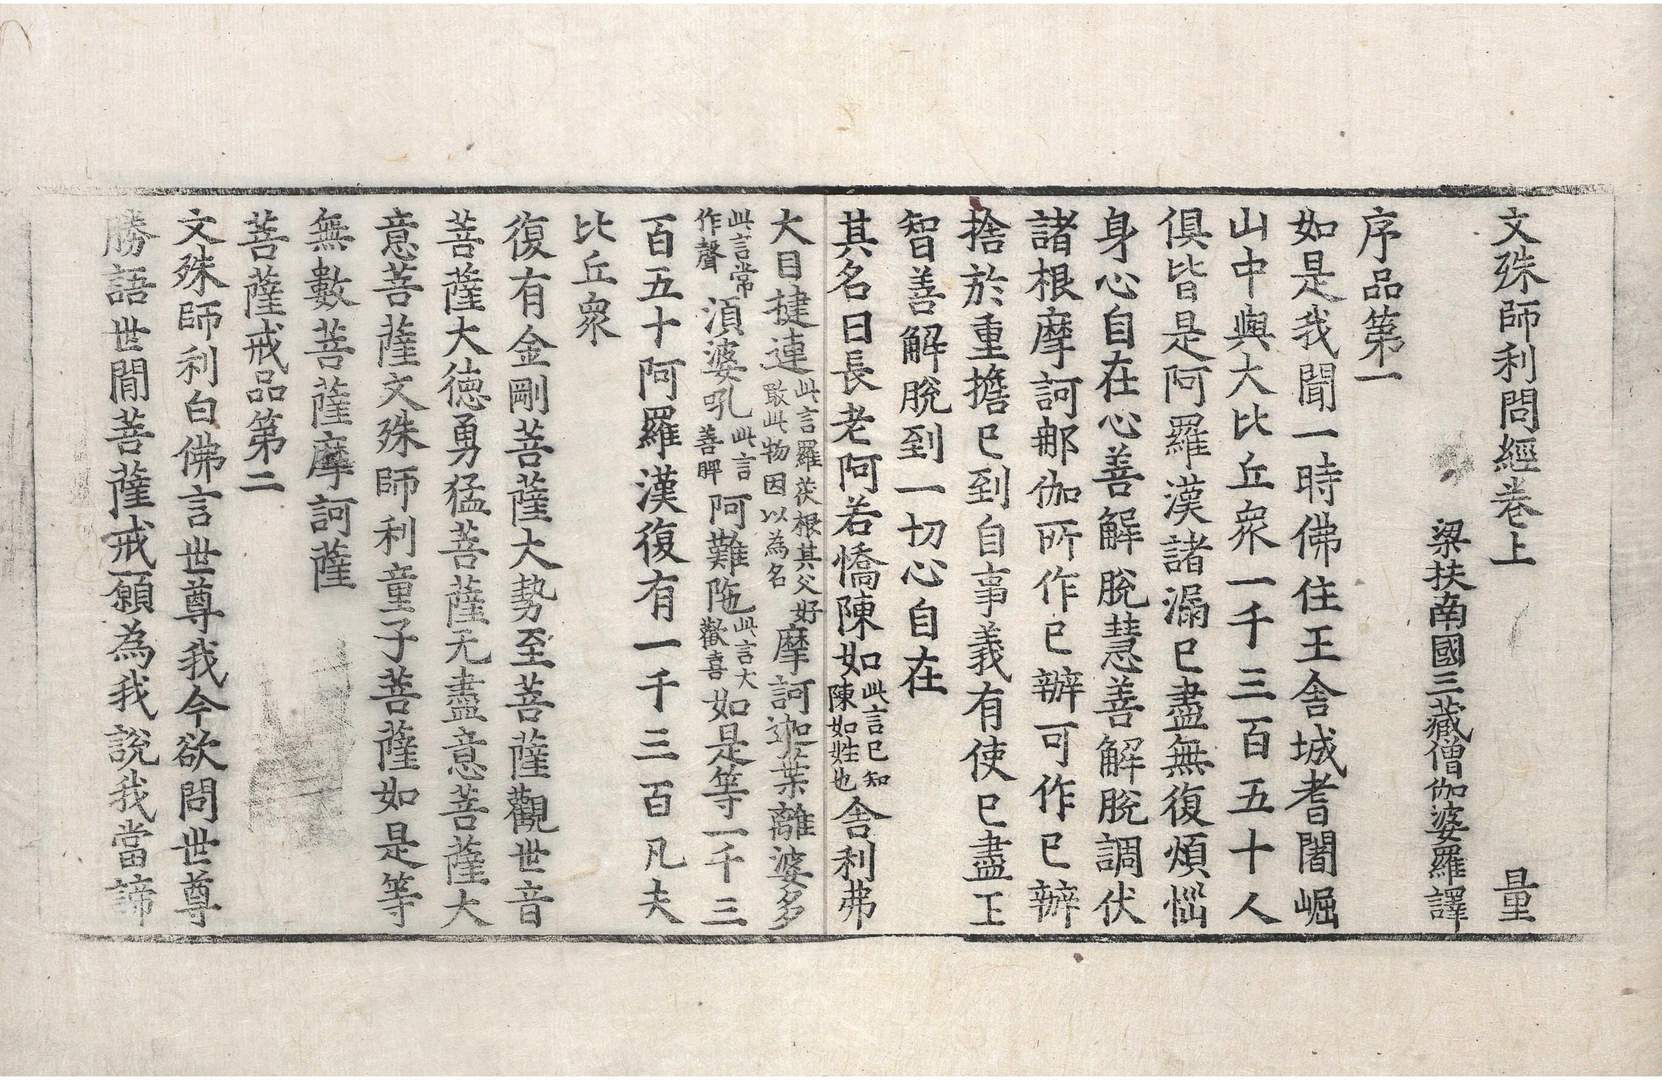 文殊師利問經卷上 量
梁扶南國三藏僧伽婆羅譯
序品第一
如是我聞一時佛住王舍城耆闍崛
山中與大比丘衆一千三百五十人
俱皆是阿羅漢諸漏已盡無復煩惱
身心自在心善解脫慧善解脫調伏
諸根摩訶那伽所作已辦可作已辦
捨於重擔已到自事義有使已盡正
智善解脫到一切心自在
其名曰長老阿若憍陳如此言已知陳如姓也舍利弗
大目揵連此言羅茯根其父好敢此物因以為名摩訶迦葉離婆多
此言常作聲須婆吼此言善脾阿難陁此言大歡喜如是等一千三
百五十阿羅漢復有一千三百凡夫
比丘衆
復有金剛菩薩大勢至菩薩觀世音
菩薩大德勇猛菩薩无盡意菩薩大
意菩薩文殊師利童子菩薩如是等
無數菩薩摩訶薩
菩薩戒品第二
文殊師利白佛言世尊我今欲問世尊
勝語世間菩薩戒願為我說我當諦